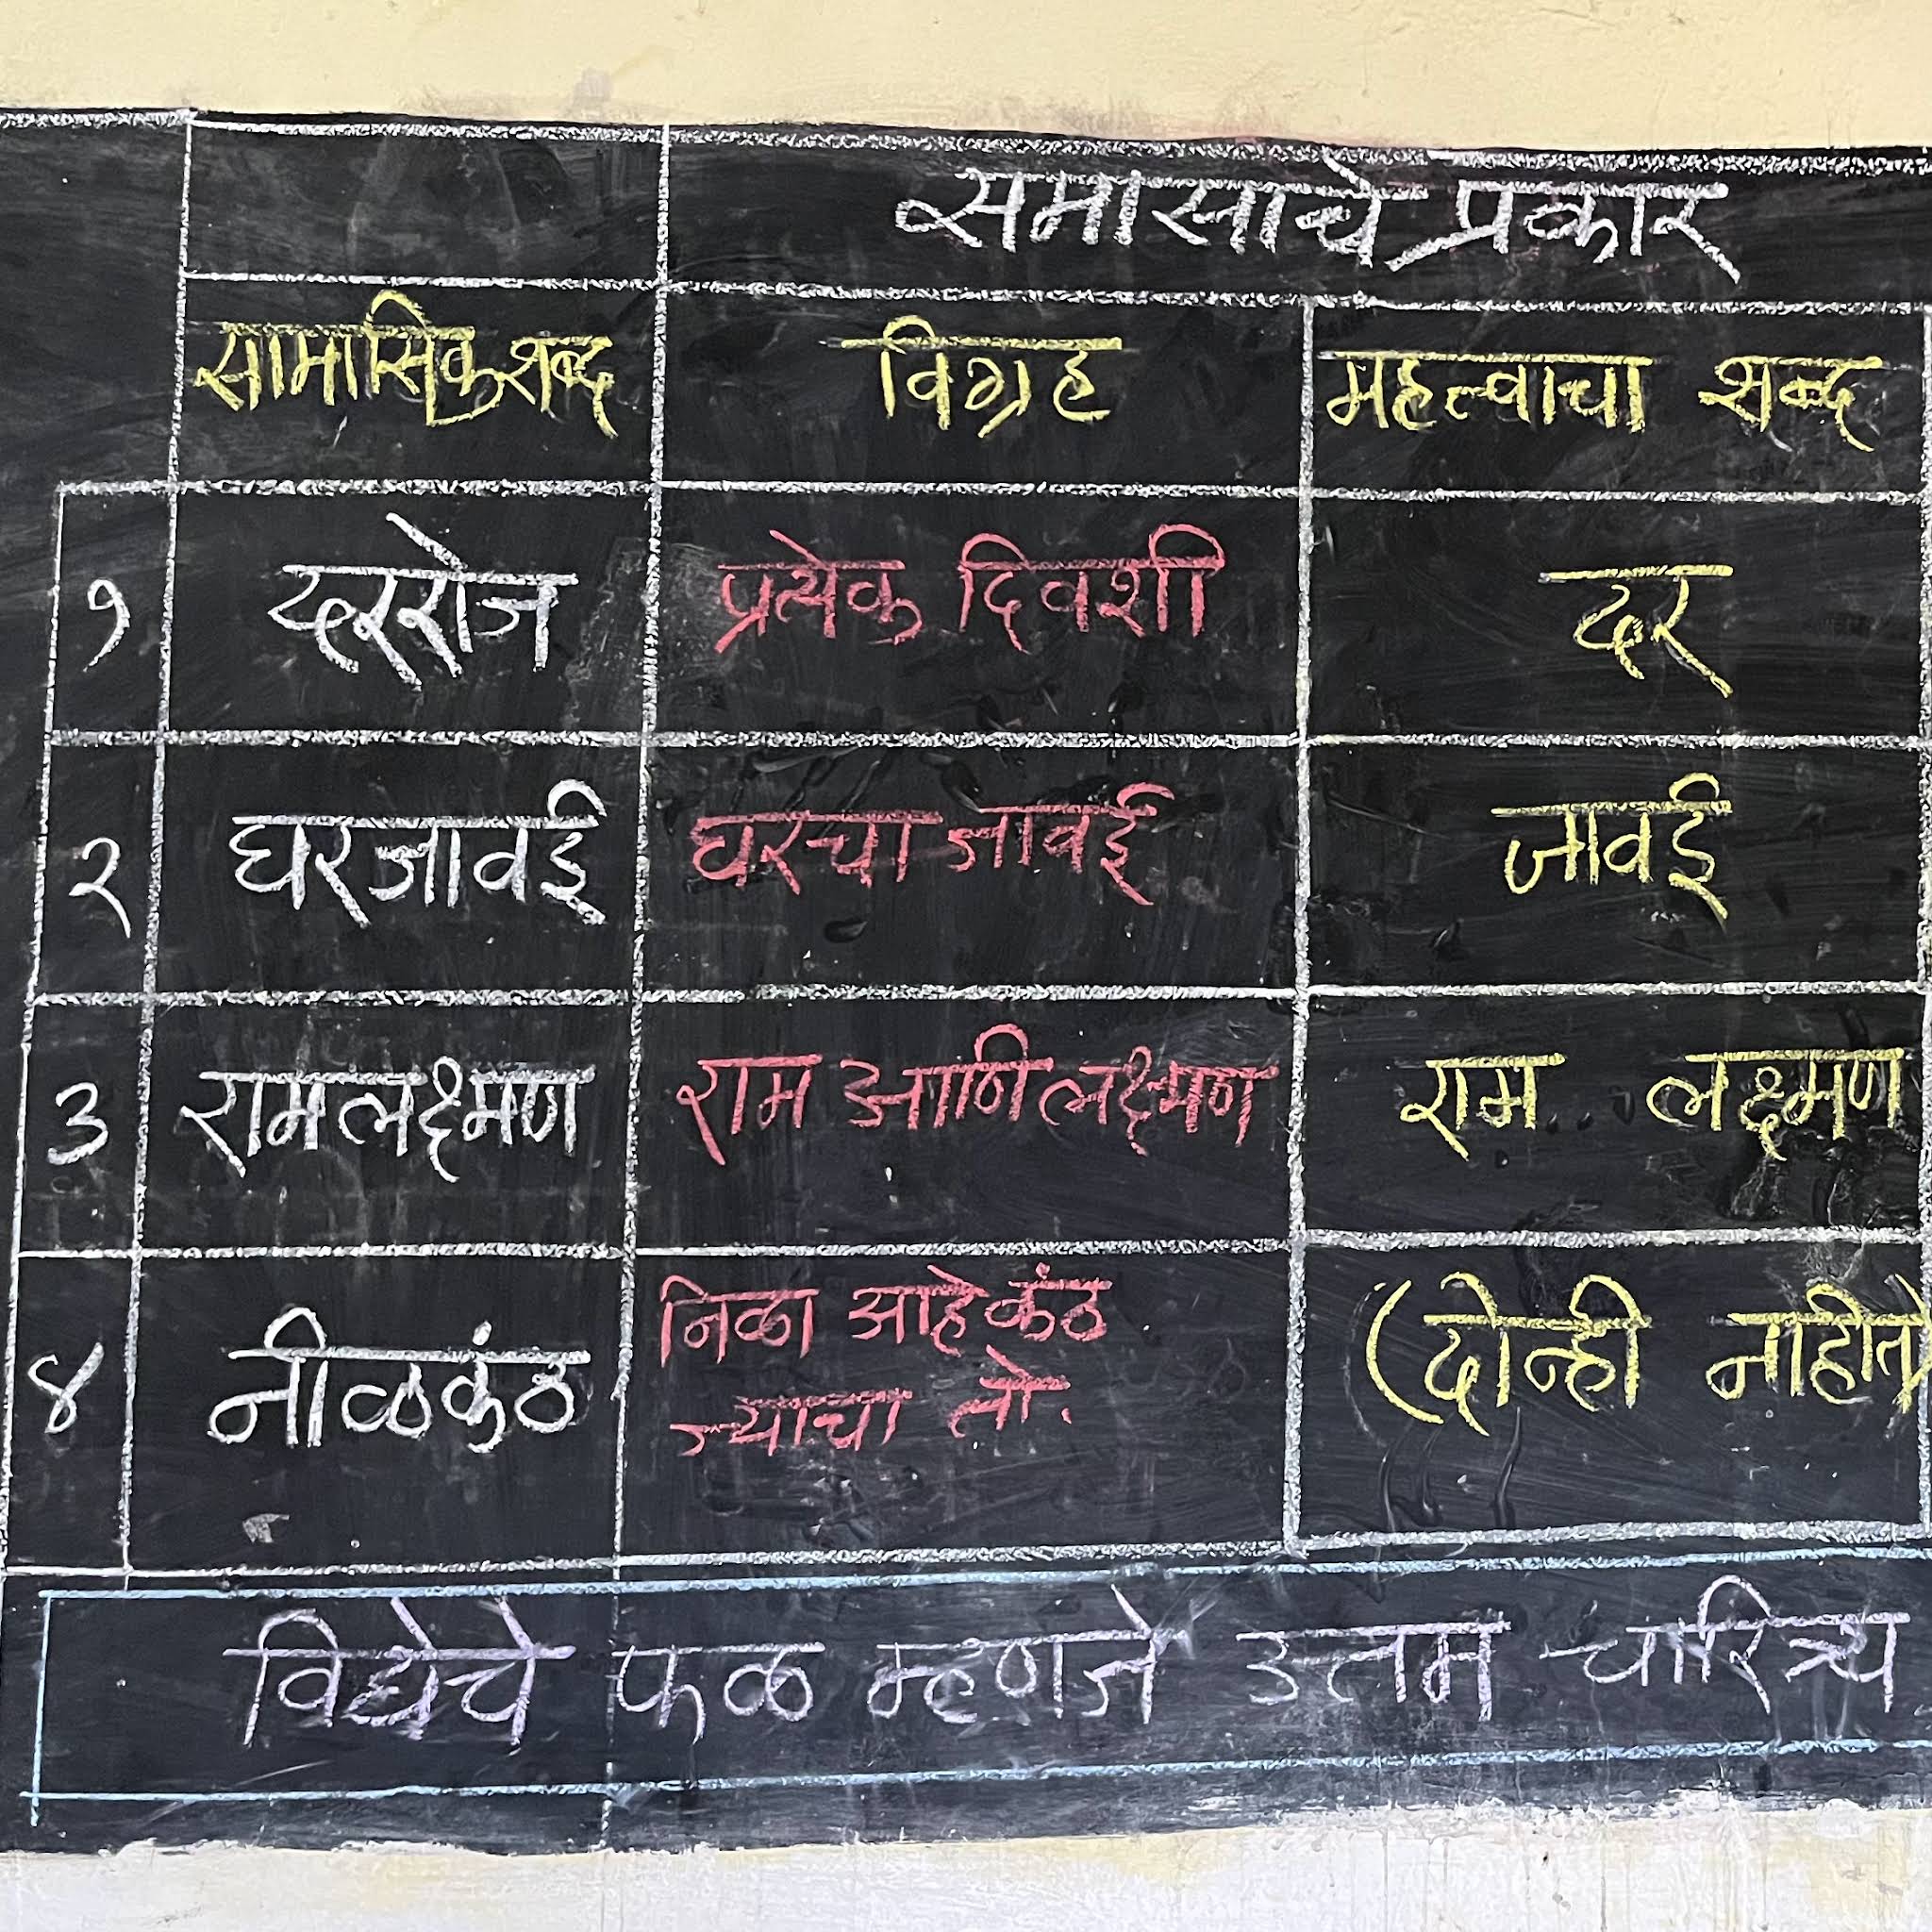 समासाचे प्रकार
सामासिक शब्द विग्रह महत्वाचा शब्द
१ दररोज प्रत्येक दिवशी दर
२ घरजावई घरचा जावई जावई
३ रामलक्ष्मण राम आणि लक्ष्मण राम लक्ष्मण
४ नीळकंठ निळा आहे कंठ (दोन्ही नाहीत)
ज्याचा तो.
विद्येचे फळ म्हणजे उत्तम चारित्र्य